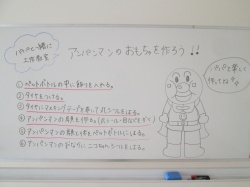 パパと一緒に
工作教室
アンパンマンのおもちゃを作ろう!!
①ペットボトルの中に飾りを入れる。
②タイヤをつける。
③タイヤにマスキングテープを巻いて丸シールをはる。
④アンパンマンの顔を作る。
⑤アンパンマンの顔と手をペットボトルにはる。
⑥アンパンマンのおなかに
パパと楽しく
作ってね